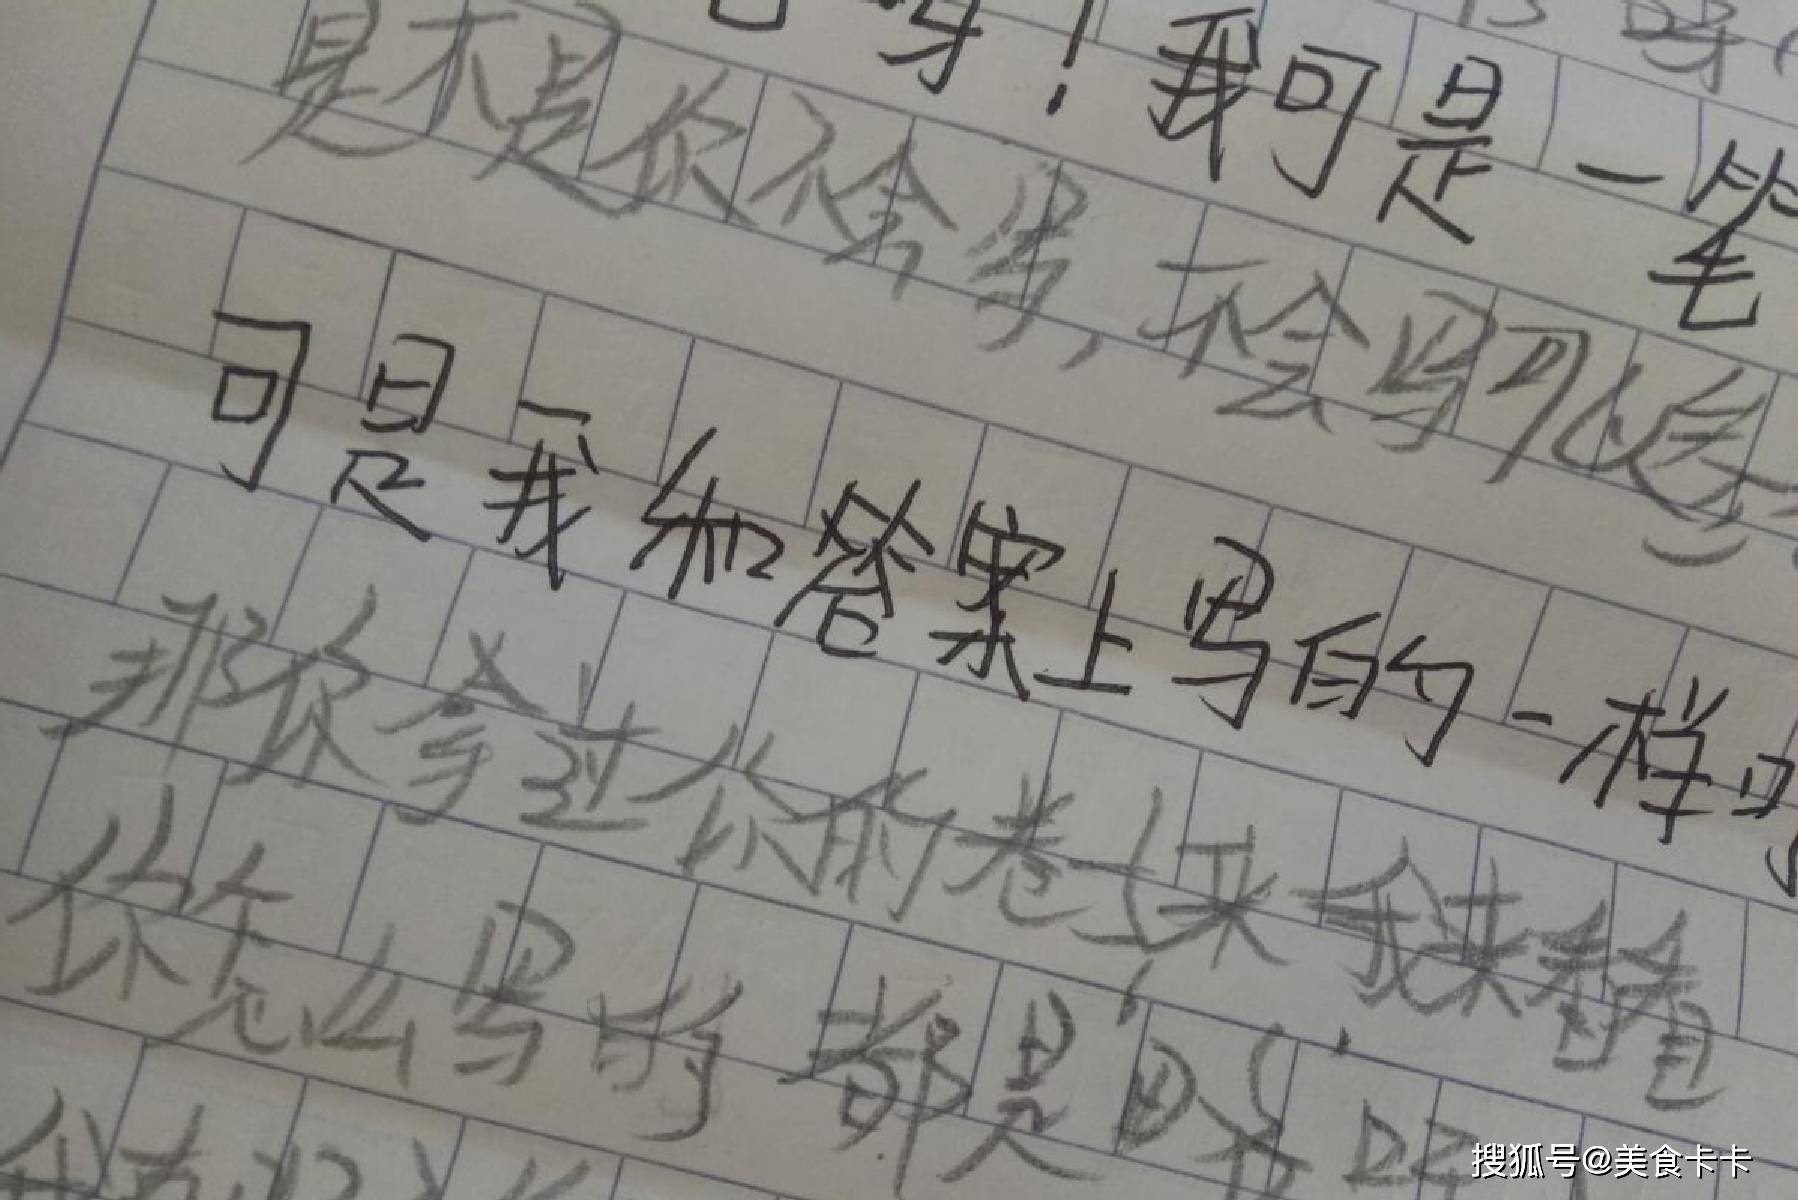 呀！我可是一笔
是不是你不会写，不会写可以
可是我和答案上写的一样呀
那你拿过你的卷子来我来看看
你怎么写的都是
搜狐号@美食卡卡